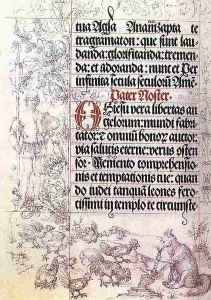 tua Agla Ananizapta te
tragramaton: que sunt lau
danda: glorificanda: tremen
da: et adoranda: nunc et Per
infinita secula seculorū Amē
Pater Noster.
O Hiesu vera libertas an
gelorum: mundi fabrica
tor: et omniū bonorꝫ auctor
vita salutis eterne: verus osten
sor. Memento comprehensio
nis et temptationis tue: quan
do iudei tanquā leones fero
cissimi in templo te circumste